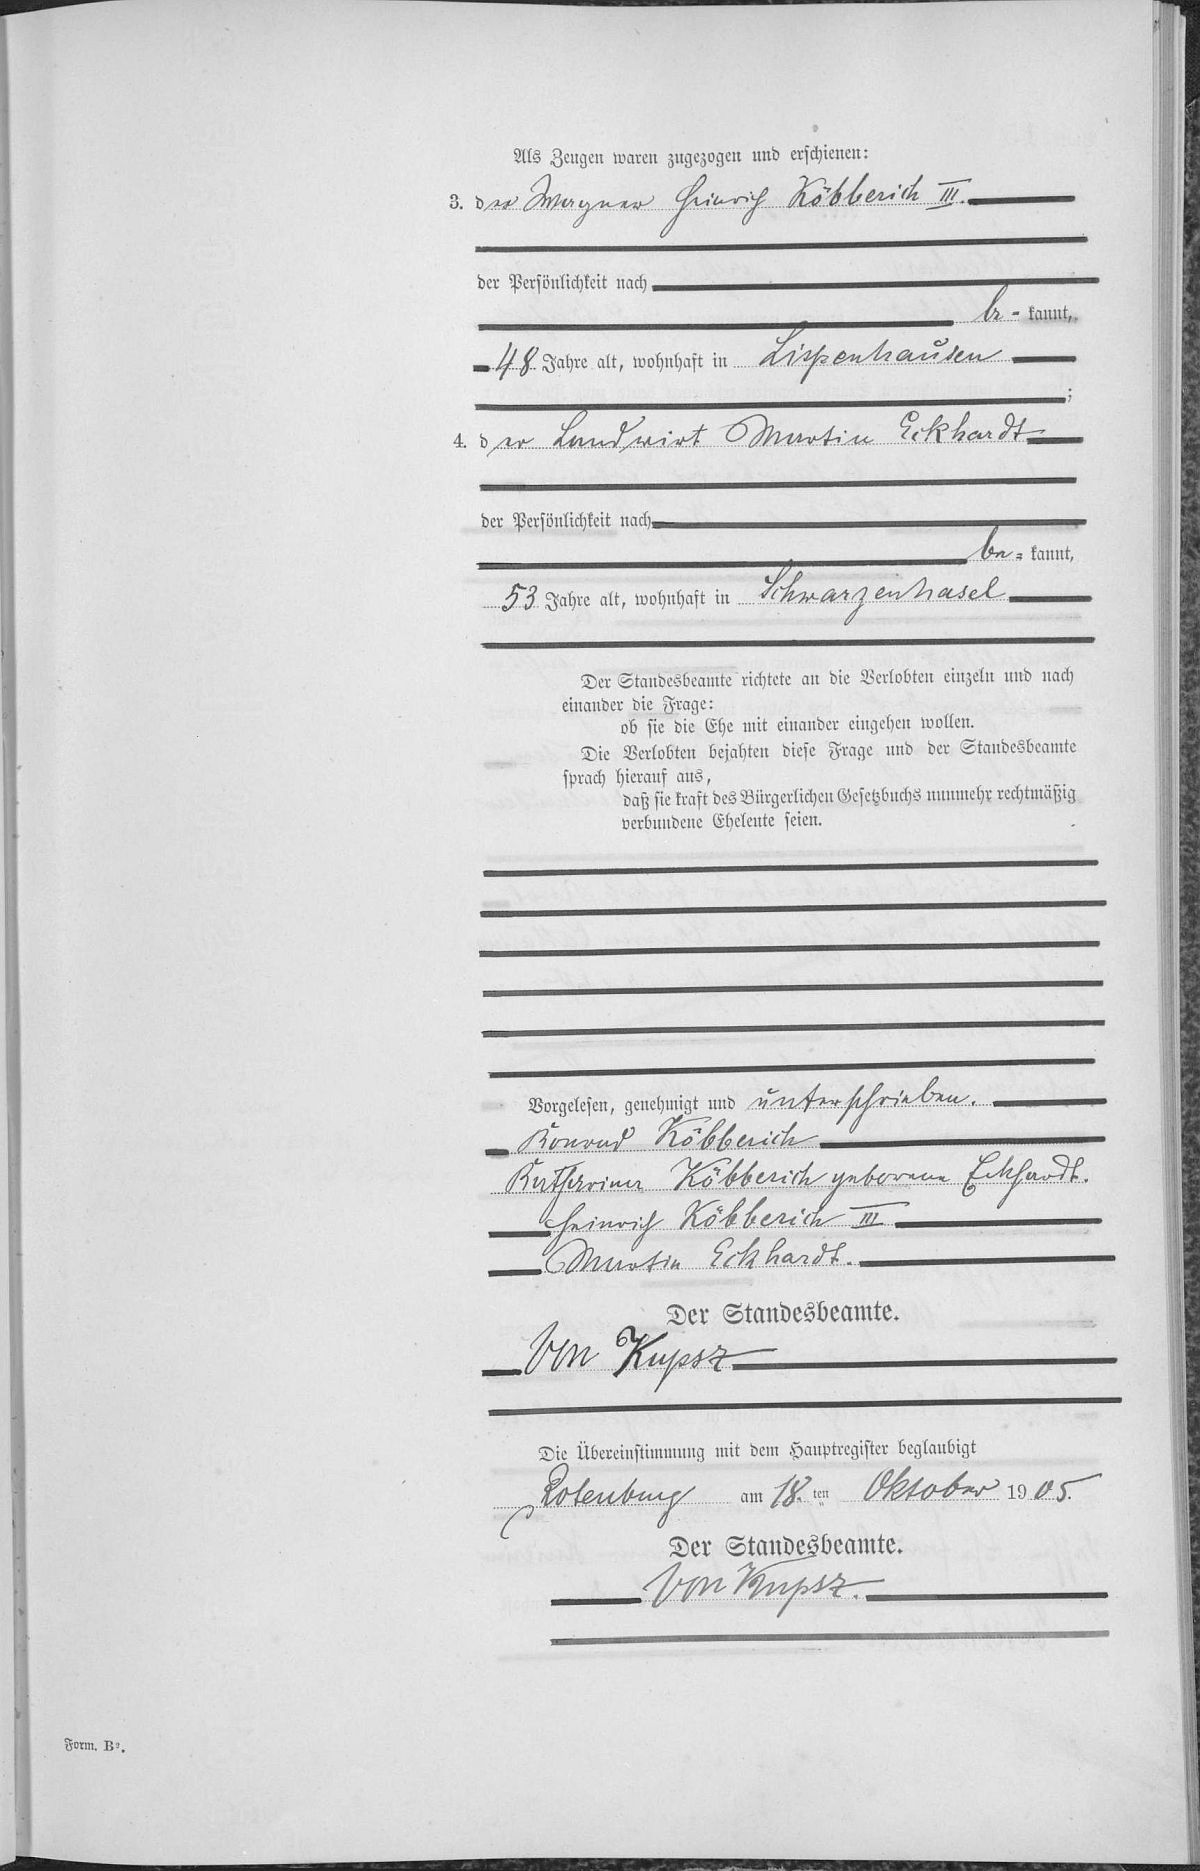 Als Zeugen waren zugezogen und erschienen:
3. der Wagner Heinrich Köbberich III.
der Persönlichkeit nach
be- kannt,
48 Jahre alt, wohnhaft in Lispenhausen
;
4. der Landwirt Martin Eckhardt
der Persönlichkeit nach
be= kannt,
53 Jahre alt, wohnhaft in Schwarzenhasel
Der Standesbeamte richtete an die Verlobten einzeln und nach
einander die Frage:
ob sie die Ehe mit einander eingehen wollen.
Die Verlobten bejahten diese Frage und der Standesbeamte
sprach hierauf aus,
daß sie kraft des Bürgerlichen Gesetzbuchs nunmehr rechtmäßig
verbundene Eheleute seien.
Vorgelesen, genehmigt und unterschrieben.
Konrad Köbberich
Katharina Köbberich geborene Eckhardt.
Heinrich Köbberich III
Martin Eckhardt.
Der Standesbeamte.
Von Kupsz
Die Übereinstimmung mit dem Hauptregister beglaubigt
Rotenburg am 18. ten Oktober 1905.
Der Standesbeamte.
Von Kupsz.
Form. B².